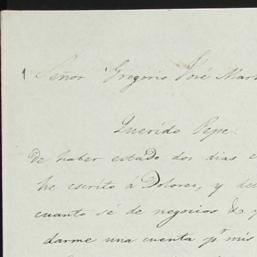 Señor Gregorio José Mar
Querido Pepe:
De haber estado dos dias e
he escrito á Dolores, y de
cuanto sé de negocios &
darme una cuenta pr mis